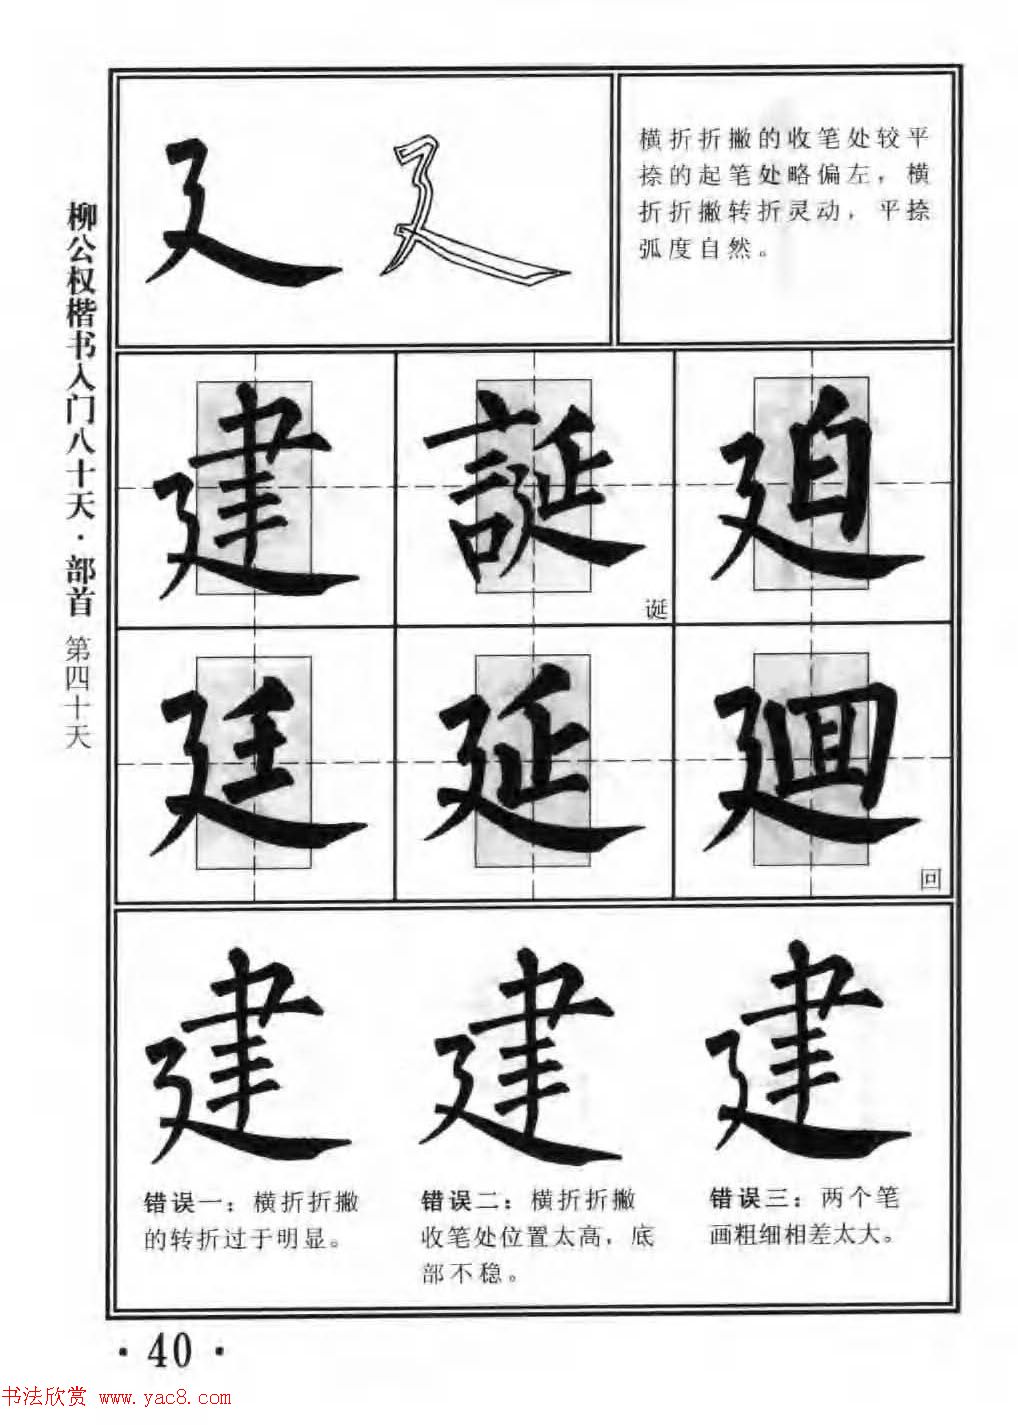 柳公权楷书入门八十天·部首
第四十天
廴
横折折撇的收笔处较平
捺的起笔处略偏左，横
折折撇转折灵动，平捺
弧度自然。
建 誕 廹
诞
廷 延 廻
回
建 建 建
错误一：横折折撇
的转折过于明显。
错误二：横折折撇
收笔处位置太高，底
部不稳。
错误三：两个笔
画粗细相差太大。
·40·
书法欣赏 www.yac8.com